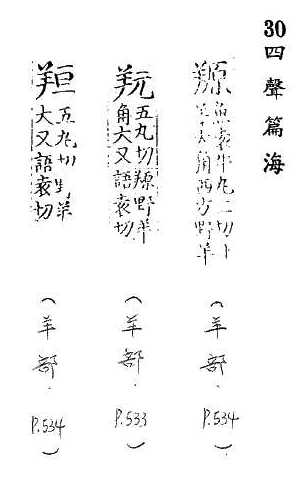 30 四聲篇海
羱
袁牛丸二切
角西方野羊
(羊部.P.534)
五丸切羱野羊
角大又語袁切
(羊部.P.533)
五丸切羊
大又語袁切
(羊部.P.534)